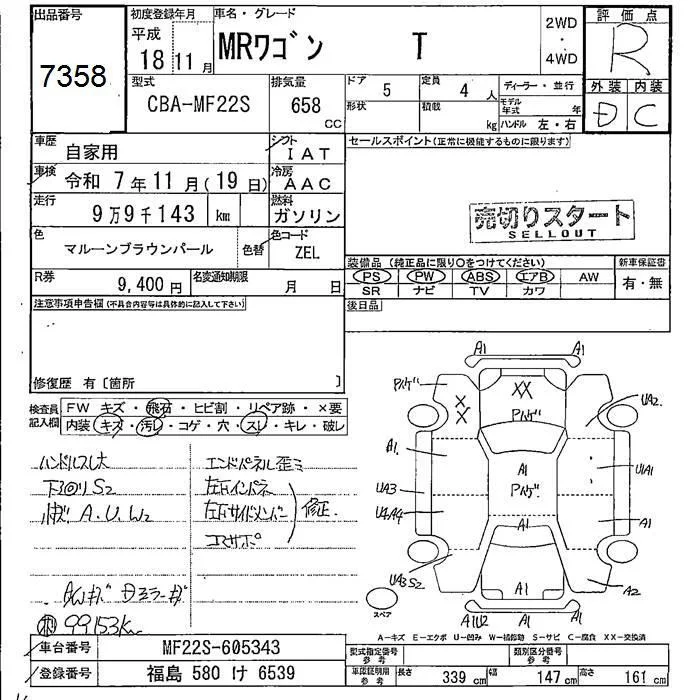 出品番号
7358
初度登録年月
平成
18 11 月
車名・グレード
MRワゴン T
2WD
・
4WD
評価点
R
外装 内装
D C
型式
CBA-MF22S
排気量
658
CC
ドア
5
定員
4 人
形状
積載
kg
ディーラー・並行
モデル年式 年
ハンドル 左・右
車歴
自家用
シフト
IAT
車検
令和 7年11月(19日)
冷房
AAC
走行
9万9千143 km
燃料
ガソリン
色
マルーンブラウンパール
色替
色コード
ZEL
R券
9,400円
名変通知期限
月 日
セールスポイント(正常に機能するものに限ります)
売切りスタート
SELLOUT
装備品 (純正品に限り○をつけてください)
PS PW ABS エアB AW
SR ナビ TV カワ
新車保証書
有・無
後日品
注意事項申告欄(不具合内容等は具体的に記入して下さい)
修復歴 有〔箇所 〕
検査員記入欄
FW キズ・飛石・ヒビ割・リペア跡・×要
内装 キズ・汚レ・コゲ・穴・スレ・キレ・破レ
ハンドルスレ大
下回りS2
A.U.W2
エンドパネル歪ミ
左Fインパネ
左Fサイドメンバー
修正.
コアサポ
Dミラーキズ
99153Km
A1 A1
Pハゲ
XX
X
X
Pハゲ
UA2
A1
A1
Pハゲ
U1A1
UA3
U4A4
A1
A1
UA3S2
A1
A2
A1U2 A1
スペア
A-キズ E-エクボ U-凹み W-補修跡 S-サビ C-腐食 XX-交換済
車台番号
MF22S-605343
登録番号
福島 580 け 6539
型式指定番号
参考
類別区分番号
参考
車庫証明用
参考
長さ 339 cm 幅 147 cm 高さ 161 cm